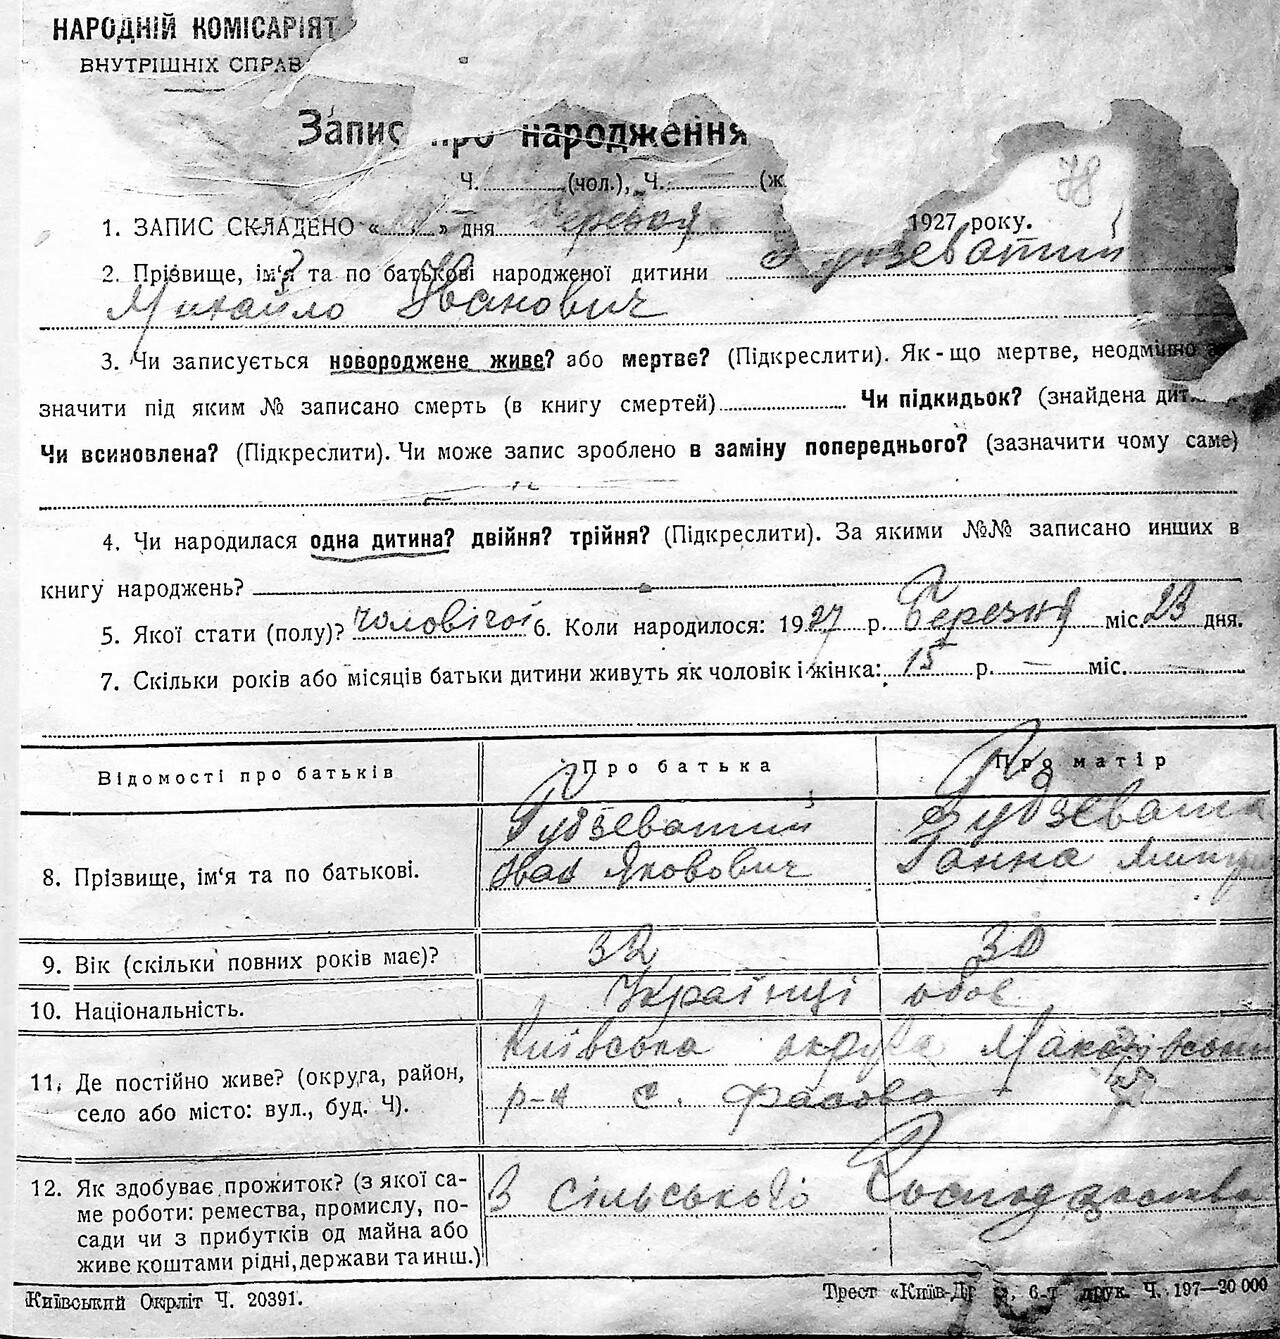 НАРОДНІЙ КОМІСАРІЯТ
ВНУТРІШНІХ СПРАВ
Запис про народження
Ч. (чол.), Ч. (ж.
78
1. ЗАПИС СКЛАДЕНО « » дня Березня 1927 року.
2. Прізвище, ім‘я та по батькові народженої дитини
Михайло Іванович
3. Чи записується новороджене живе? або мертве? (Підкреслити). Як-що мертве, неодмінно
значити під яким № записано смерть (в книгу смертей) Чи підкидьок? (знайдена дит
Чи всиновлена? (Підкреслити). Чи може запис зроблено в заміну попереднього? (зазначити чому саме)
4. Чи народилася одна дитина? двійня? трійня? (Підкреслити). За якими №№ записано инших в
книгу народжень?
5. Якої стати (полу)? чоловічої 6. Коли народилося: 1927 р. Березня міс. 23 дня.
7. Скільки років або місяців батьки дитини живуть як чоловік і жінка: 15 р. — міс. —
Відомості про батьків Про батька Про матір
Гудзеватий Гудзевата
8. Прізвище, ім‘я та по батькові. Іван Якович Ганна
9. Вік (скільки повних років має)? 32 30
10. Національність. Українці обоє
Київська округа
11. Де постійно живе? (округа, район,
село або місто: вул., буд. Ч). р-н с. Фасова
12. Як здобуває прожиток? (з якої са-
ме роботи: ремества, промислу, по-
сади чи з прибутків од майна або
живе коштами рідні, держави та инш.)
З сільського Господарства
Київський Окрліт Ч. 20391.
Трест «Київ-Др 6-т друк. Ч. 197—20 000